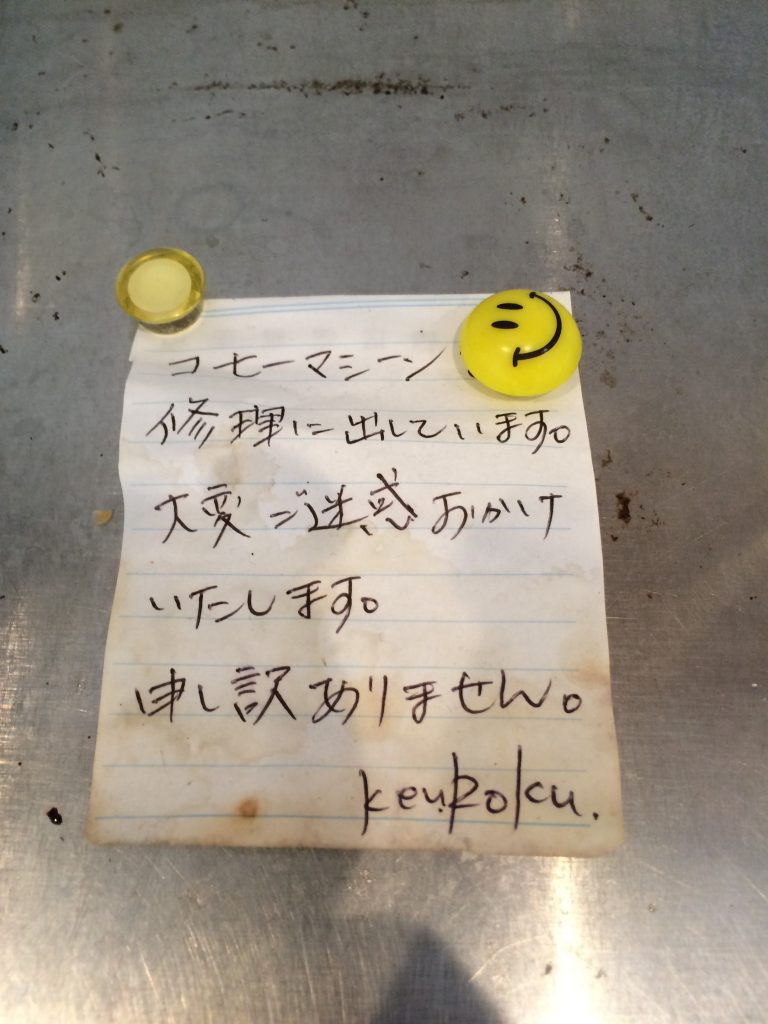 コーヒーマシーン
修理に出しています。
大変ご迷惑おかけ
いたします。
申し訳ありません。
kenRoku.